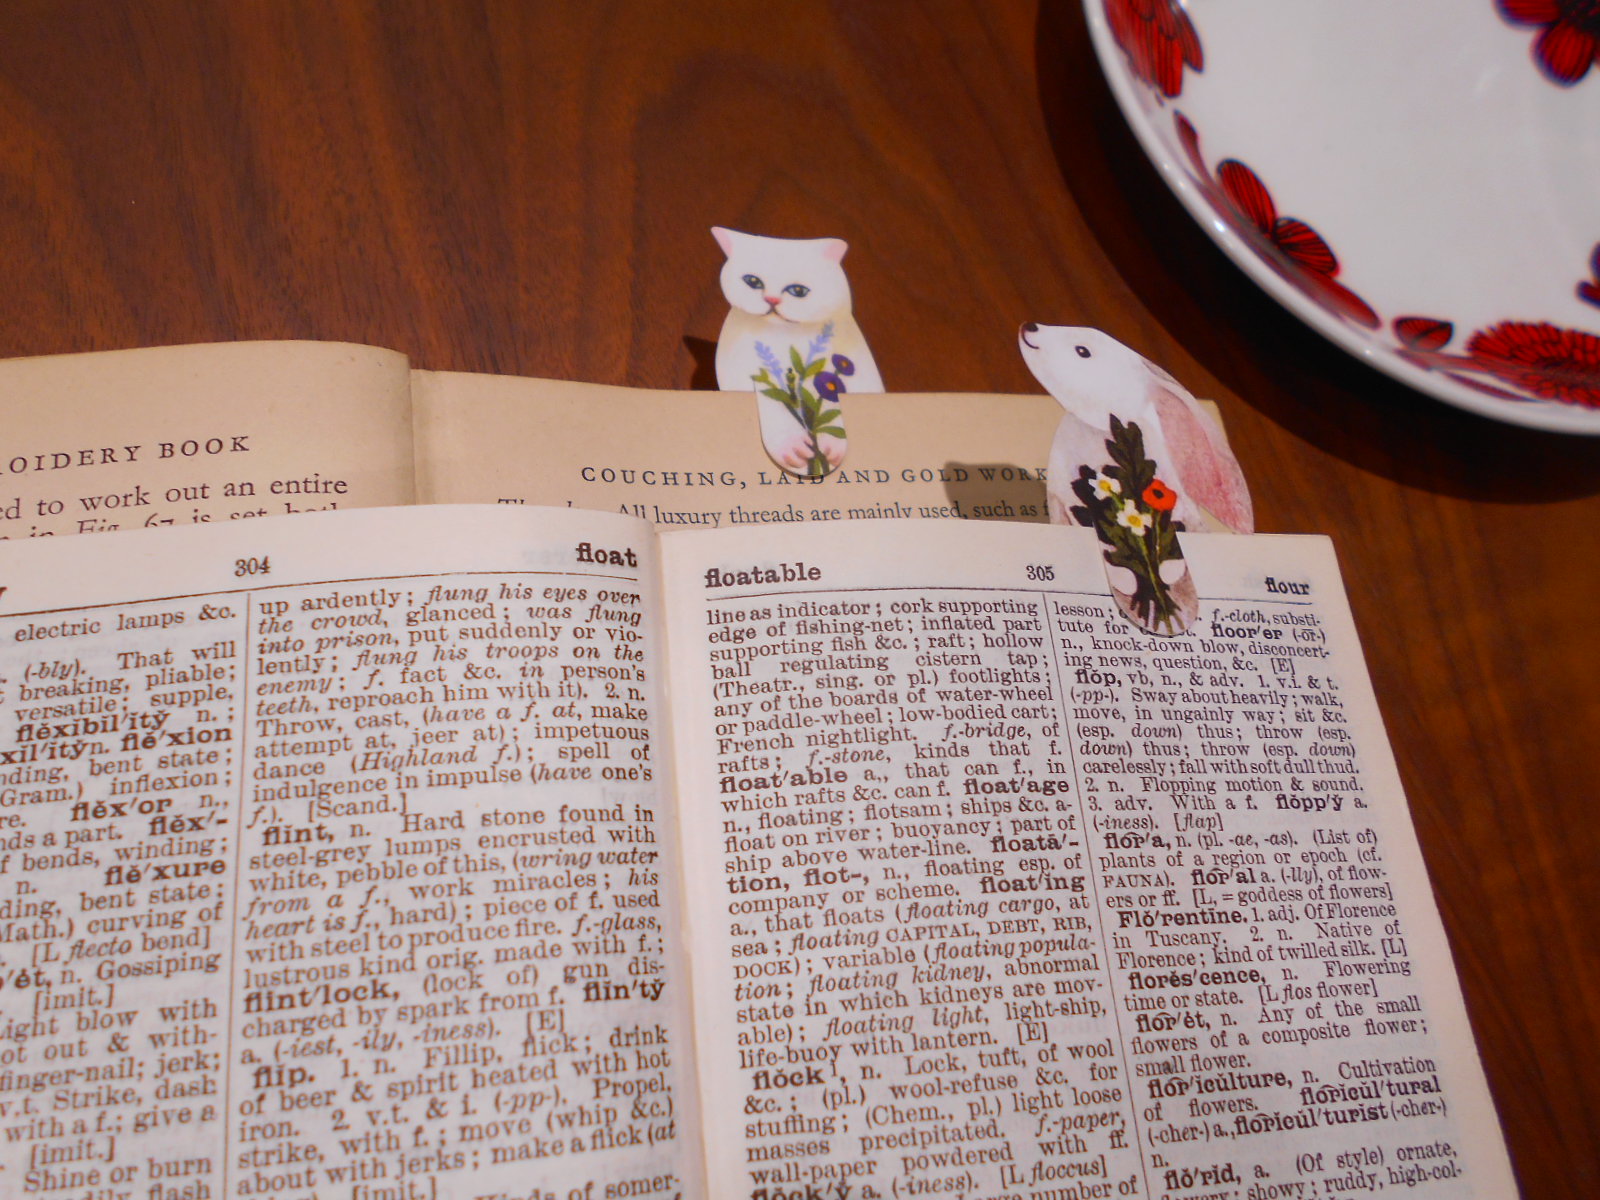 OIDERY BOOK
ed to work out an entire
in Fig. 67 is set both
COUCHING, LAID AND GOLD WORK
All luxury threads are mainly used, such as
304 float
electric lamps &c.
(-bly). That will
breaking, pliable;
versatile; supple,
flĕxibĭl′ĭtў n.;
xĭl′ĭtўn. flĕ′xion
nding, bent state;
Gram.) inflexion;
re. flĕx′or n.,
nds a part. flĕx′-
f bends, winding;
n. flĕ′xure
ding, bent state;
Math.) curving of
[L flecto bend]
n. Gossiping
[imit.]
Light blow with
ot out & with-
finger-nail; jerk;
v.t. Strike, dash
with a f.; give a
[imit.]
Shine or burn
flash
up ardently; flung his eyes over
the crowd, glanced; was flung
into prison, put suddenly or vio-
lently; flung his troops on the
enemy; f. fact &c. in person's
teeth, reproach him with it). 2. n.
Throw, cast, (have a f. at, make
attempt at, jeer at); impetuous
dance (Highland f.); spell of
indulgence in impulse (have one's
f.). [Scand.]
flĭnt, n. Hard stone found in
steel-grey lumps encrusted with
white, pebble of this, (wring water
from a f., work miracles; his
heart is f., hard); piece of f. used
with steel to produce fire. f.-glass,
lustrous kind orig. made with f.;
flint′lock, (lock of) gun dis-
charged by spark from f. flĭn′tў
a. (-iest, -ily, -iness). [E]
flĭp. 1. n. Fillip, flick; drink
of beer & spirit heated with hot
iron. 2. v.t. & i. (-pp-). Propel,
strike, with f.; move (whip &c.)
about with jerks; make a flick (at
[imit.] Kinds of somer-
floatable 305 flour
line as indicator; cork supporting
edge of fishing-net; inflated part
supporting fish &c.; raft; hollow
ball regulating cistern tap;
(Theatr., sing. or pl.) footlights;
any of the boards of water-wheel
or paddle-wheel; low-bodied cart;
French nightlight. f.-bridge, of
rafts; f.-stone, kinds that f.
float′able a., that can f., in
which rafts &c. can f. float′age
n., floating; flotsam; ships &c. a-
float on river; buoyancy; part of
ship above water-line. floatā′-
tion, flot-, n., floating esp. of
company or scheme. float′ing
a., that floats (floating cargo, at
sea; floating CAPITAL, DEBT, RIB,
DOCK); variable (floating popula-
tion; floating kidney, abnormal
state in which kidneys are mov-
able); floating light, light-ship,
life-buoy with lantern. [E]
flŏck¹, n. Lock, tuft, of wool
&c.; (pl.) wool-refuse &c. for
stuffing; (Chem., pl.) light loose
masses precipitated. f.-paper,
wall-paper powdered with ff.
flŏck′ў a. (-iness). [L floccus]
number of
lesson; f.-cloth, substi-
tute for floor′er (-or-)
n., knock-down blow, disconcert-
ing news, question, &c. [E]
flŏp, vb, n., & adv. 1. v.i. & t.
(-pp-). Sway about heavily; walk,
move, in ungainly way; sit &c.
(esp. down) thus; throw (esp.
down) thus; throw (esp. down)
carelessly; fall with soft dull thud.
2. n. Flopping motion & sound.
3. adv. With a f. flŏpp′ў a.
(-iness). [flap]
flor′a, n. (pl. -ae, -as). (List of)
plants of a region or epoch (cf.
FAUNA). flor′al a. (-lly), of flow-
ers or ff. [L, = goddess of flowers]
Flŏ′rentine. 1. adj. Of Florence
in Tuscany. 2. n. Native of
Florence; kind of twilled silk. [L]
florĕs′cence, n. Flowering
time or state. [L flos flower]
flor′ĕt, n. Any of the small
flowers of a composite flower;
small flower.
flor′icŭlture, n. Cultivation
of flowers. floricŭl′tural
(-cher-) a., floricŭl′turist (-cher-)
n.
flŏ′rĭd, a. (Of style) ornate,
flowery; showy; ruddy, high-col-